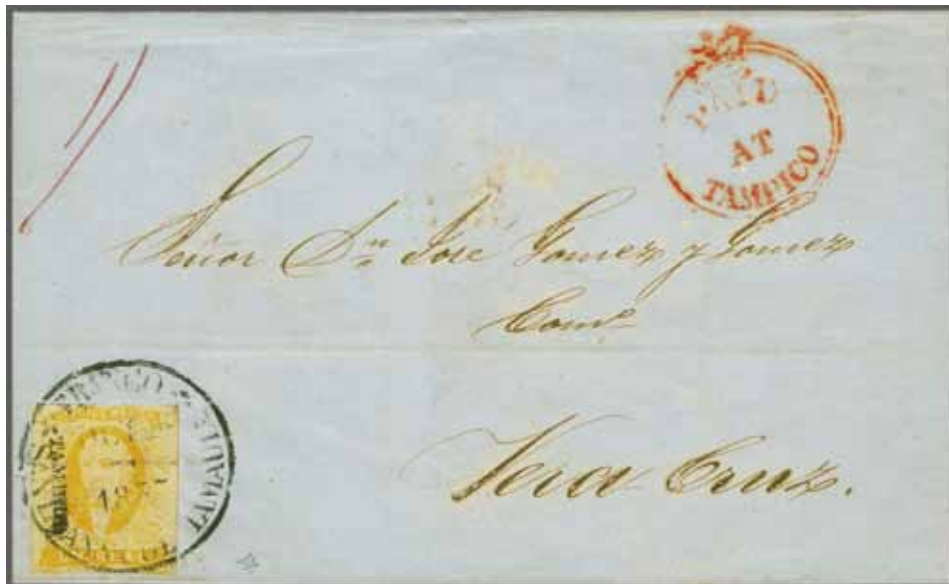 PAID
AT
TAMPICO
Señor Dn Jose Gomez y Gomez
Vera Cruz.
TAMPICO
18